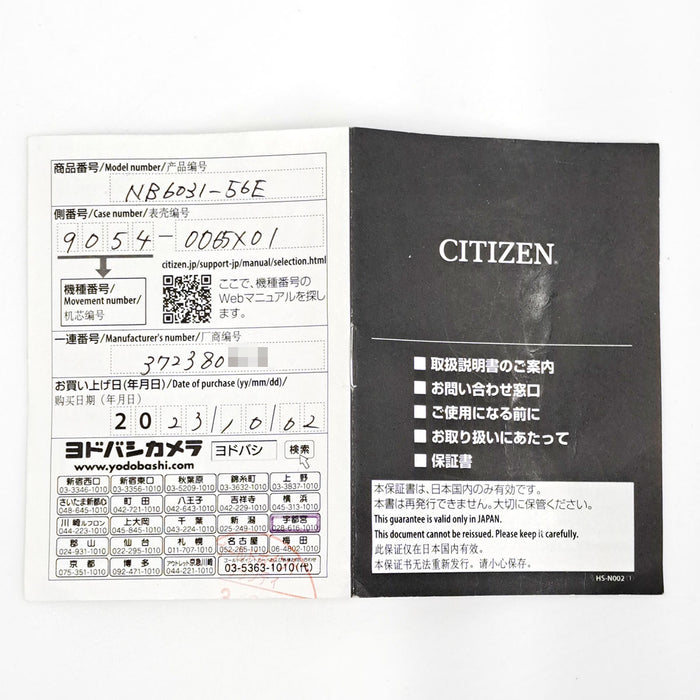 商品番号/Model number/产品编号
NB6031-56E
側番号/Case number/表壳编号
9054-0065X01
citizen.jp/support-jp/manual/selection.html
機種番号/
Movement number/
机芯编号
ここで、機種番号の
Webマニュアルを探し
ます。
一連番号/Manufacturer's number/厂商编号
372380
お買い上げ日(年月日)/Date of purchase (yy/mm/dd)/
购买日期 (年月日)
2023/10/02
ヨドバシカメラ ヨドバシ 検索
www.yodobashi.com
新宿西口 新宿東口 秋葉原 錦糸町 上野
03-3346-1010 03-3356-1010 03-5209-1010 03-3632-1010 03-3837-1010
さいたま新都心 町田 八王子 吉祥寺 横浜
048-645-1010 042-721-1010 042-643-1010 0422-29-1010 045-313-1010
川崎ルフロン 上大岡 千葉 新潟 宇都宮
044-223-1010 045-845-1010 043-224-1010 025-249-1010 028-616-1010
郡山 仙台 札幌 名古屋 梅田
024-931-1010 022-295-1010 011-707-1010 052-265-1010 06-4802-1010
京都 博多 アウトレット京急川崎
075-351-1010 092-471-1010 044-221-1010 03-5363-1010(代)
CITIZEN
■ 取扱説明書のご案内
■ お問い合わせ窓口
■ ご使用になる前に
■ お取り扱いにあたって
■ 保証書
本保証書は、日本国内のみ有効です。
本書は再発行できません。大切に保管ください。
This guarantee is valid only in JAPAN.
This document cannot be reissued. Please keep it carefully.
此保证仅在日本国内有效。
本保证书无法重新发行。请小心保存。
HS-N002(1)